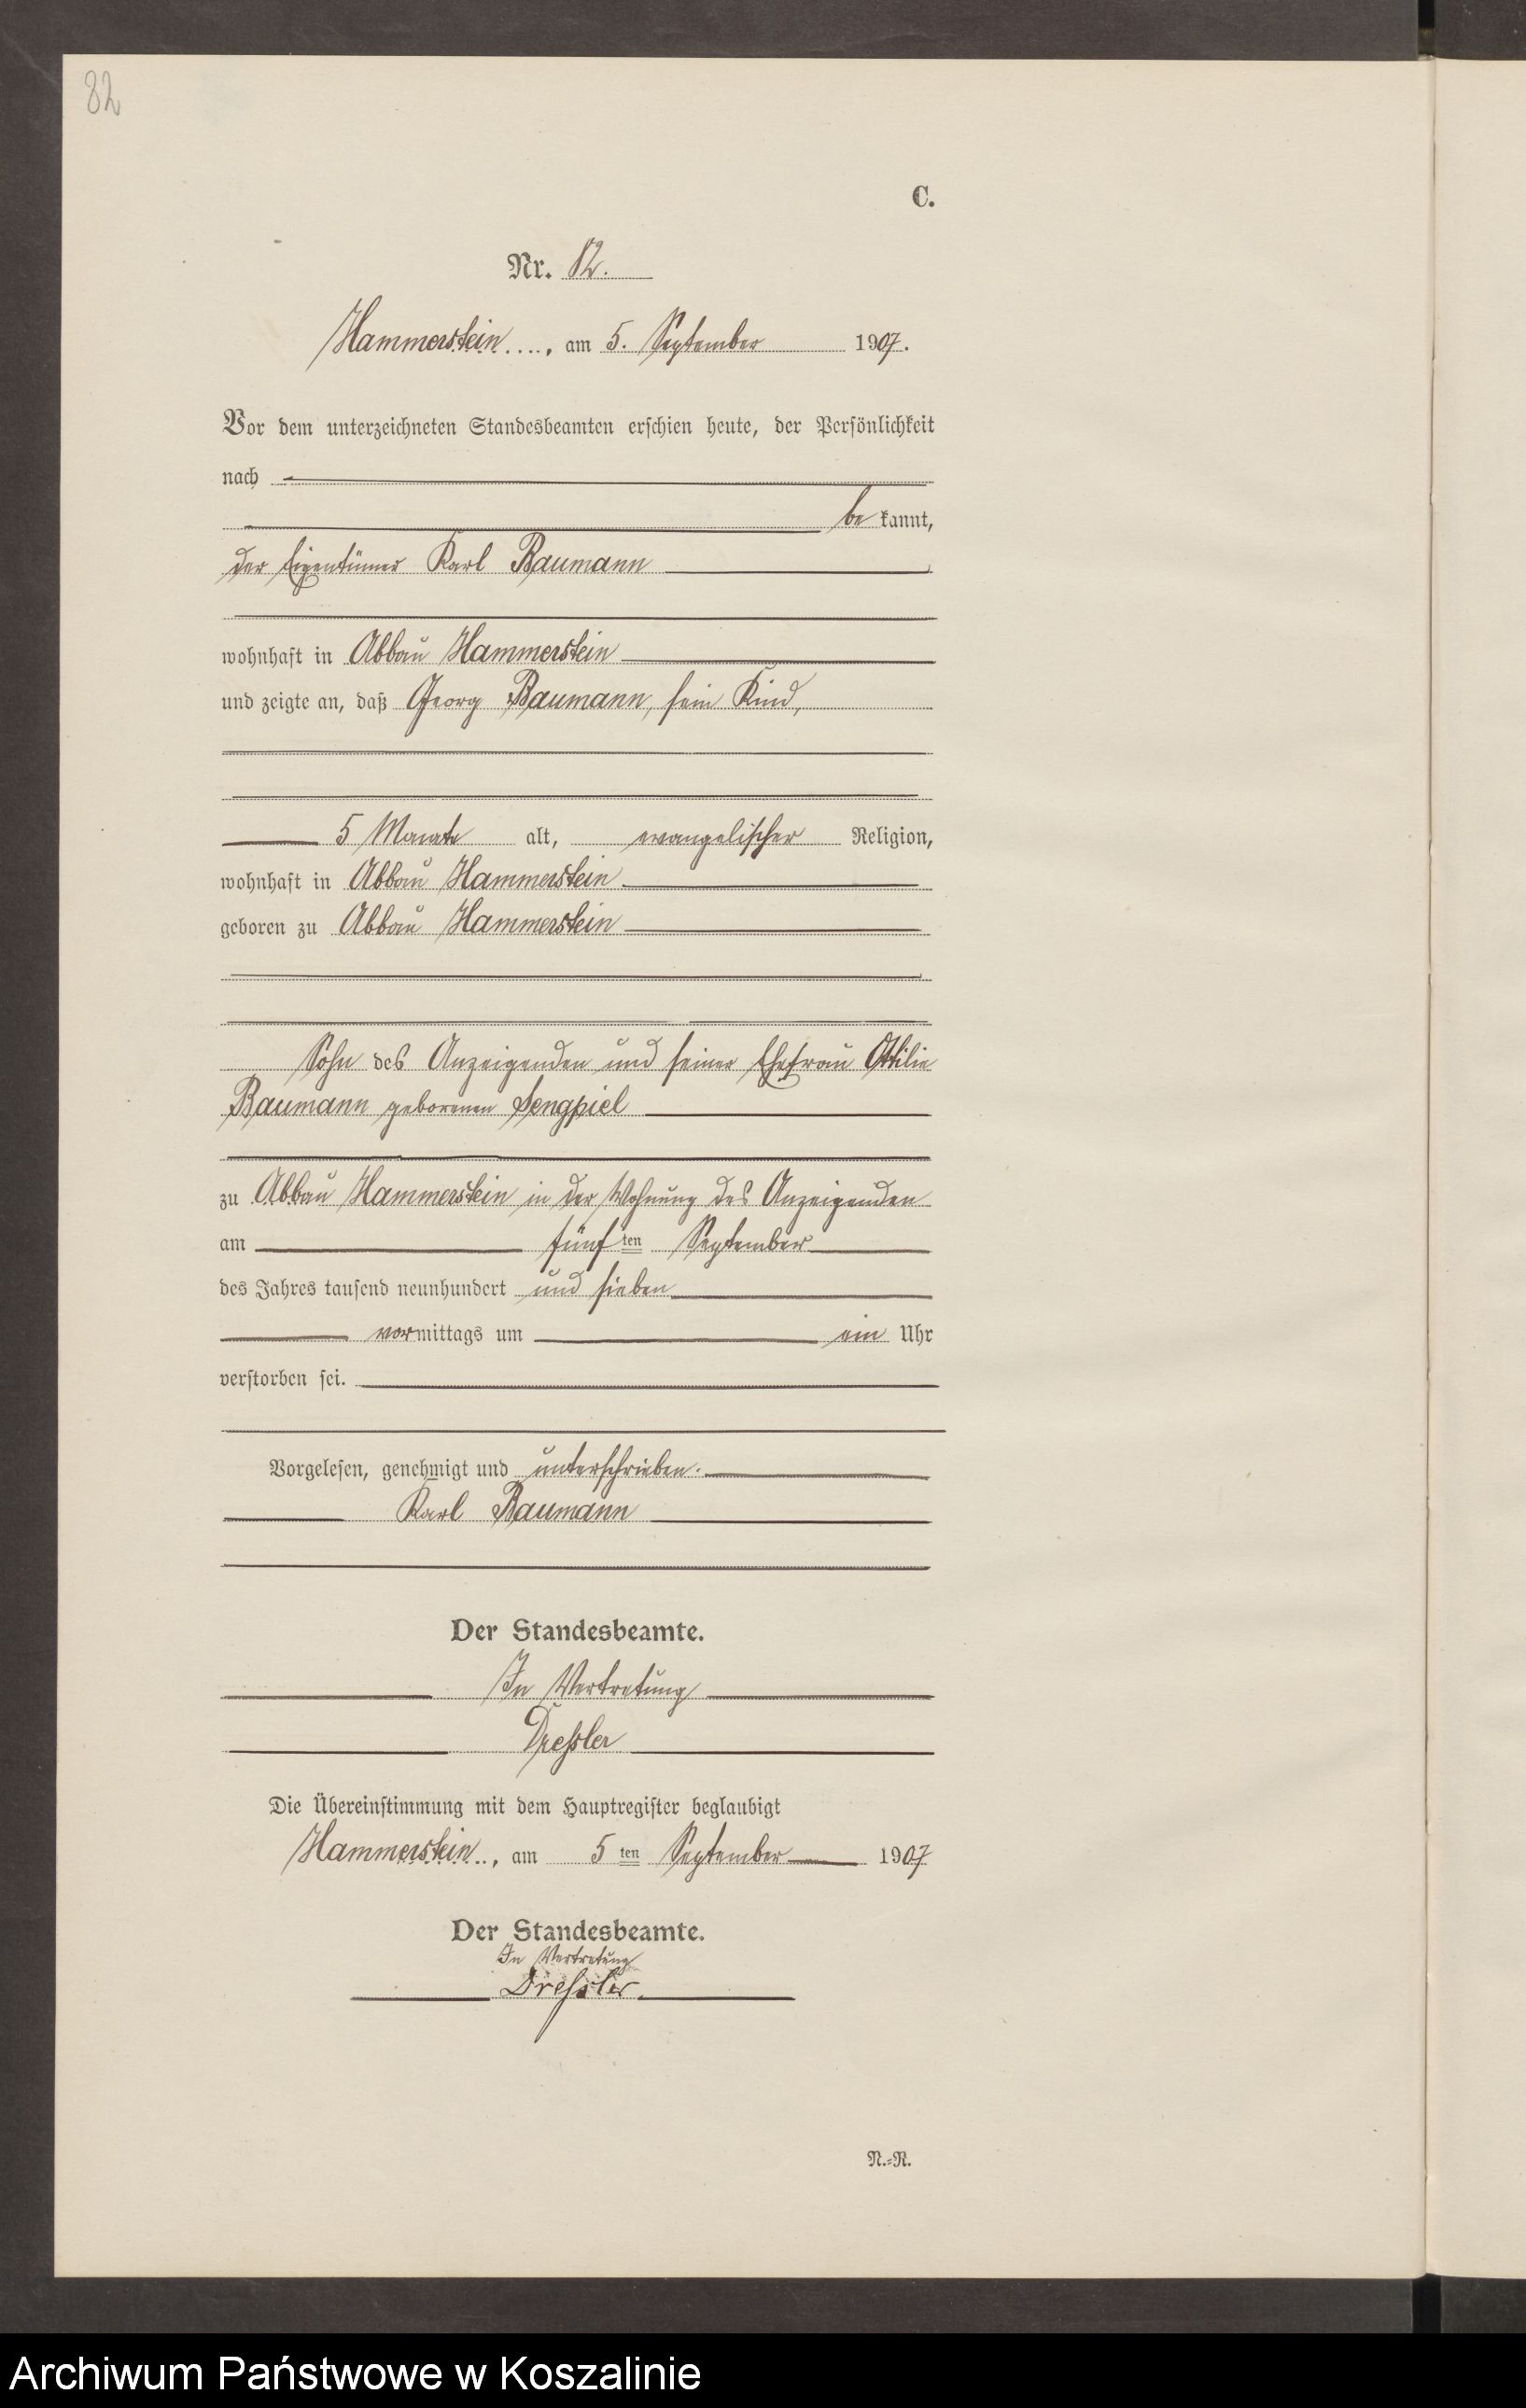 82
C.
Nr. 82.
Hammerstein...., am 5. September 1907.
Vor dem unterzeichneten Standesbeamten erschien heute, der Persönlichkeit
nach
be kannt,
der Eigentümer Karl Baumann
wohnhaft in Abbau Hammerstein
und zeigte an, daß Georg Baumann, sein Kind,
5 Monate alt, evangelischer Religion,
wohnhaft in Abbau Hammerstein
geboren zu Abbau Hammerstein
Sohn des Anzeigenden und seiner Ehefrau Ottilie
Baumann geborenen Sengpiel
zu Abbau Hammerstein in der Wohnung des Anzeigenden
am fünf ten September
des Jahres tausend neunhundert und sieben
vormittags um ein Uhr
verstorben sei.
Vorgelesen, genehmigt und unterschrieben.
Karl Baumann
Der Standesbeamte.
In Vertretung
Dreßler
Die Übereinstimmung mit dem Hauptregister beglaubigt
Hammerstein.., am 5 ten September 1907
Der Standesbeamte.
In Vertretung
Dreßler.
N.-R.
Archiwum Państwowe w Koszalinie